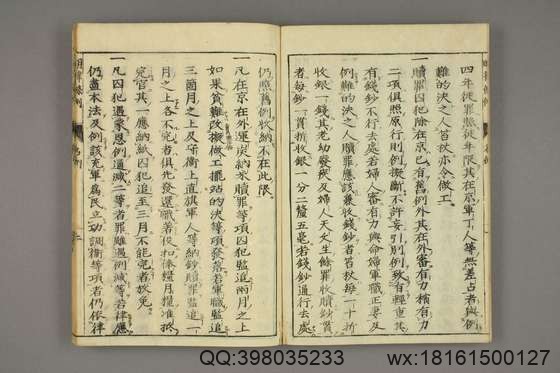 四年徒罪照徒年限其在京軍丁人等無差占者與例
難的決之人笞杖亦令做工
一贖罪囚犯除在京已有舊例外其在外審有力稍有力
二項俱照原行則例擬斷不許妄引別例致有輕重其
有錢鈔不行去處若婦人審有力與命婦軍職正妻及
例難的決之人贖罪應該兼收錢鈔者笞杖每一十折
收銀一錢其老幼廢疾及婦人天文生餘罪收贖鈔貫
者每鈔一貫折收銀一分二釐五毫若錢鈔通行去處
仍照舊例收納不在此限
一凡在京在外運炭納米贖罪等項囚犯監追兩月之上
如果貧難改擬做工擺站的決等項發落若軍職監追
三箇月之上及守衛上直旗軍人等納鈔贖罪監追一
月之上各不完者俱先發還職着役扣俸糧月糧准抵
完官其一應納紙囚犯追至三月不能完者放免
一凡囚犯遇蒙恩例通減二等者罪雖遇例減等若律應
仍盡本法及例該充軍為民立功調衛等項者仍依律
QQ:398035233
wx:18161500127